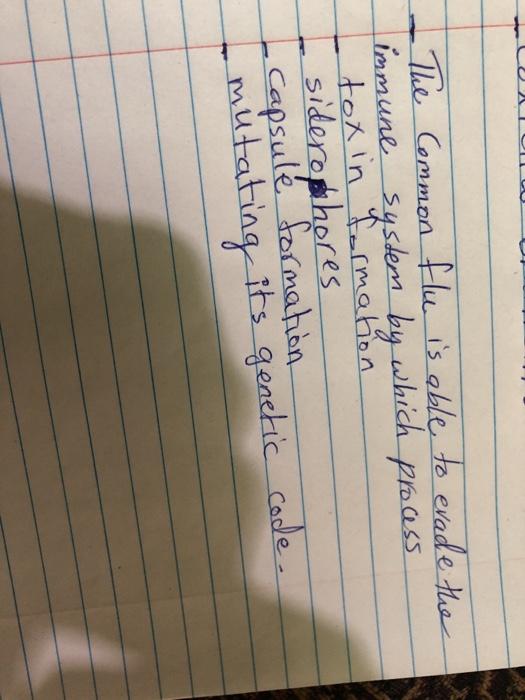 - The Common flu is able to evade the
immune system by which process
- toxin formation
- siderophores
- Capsule formation
- mutating its genetic code.